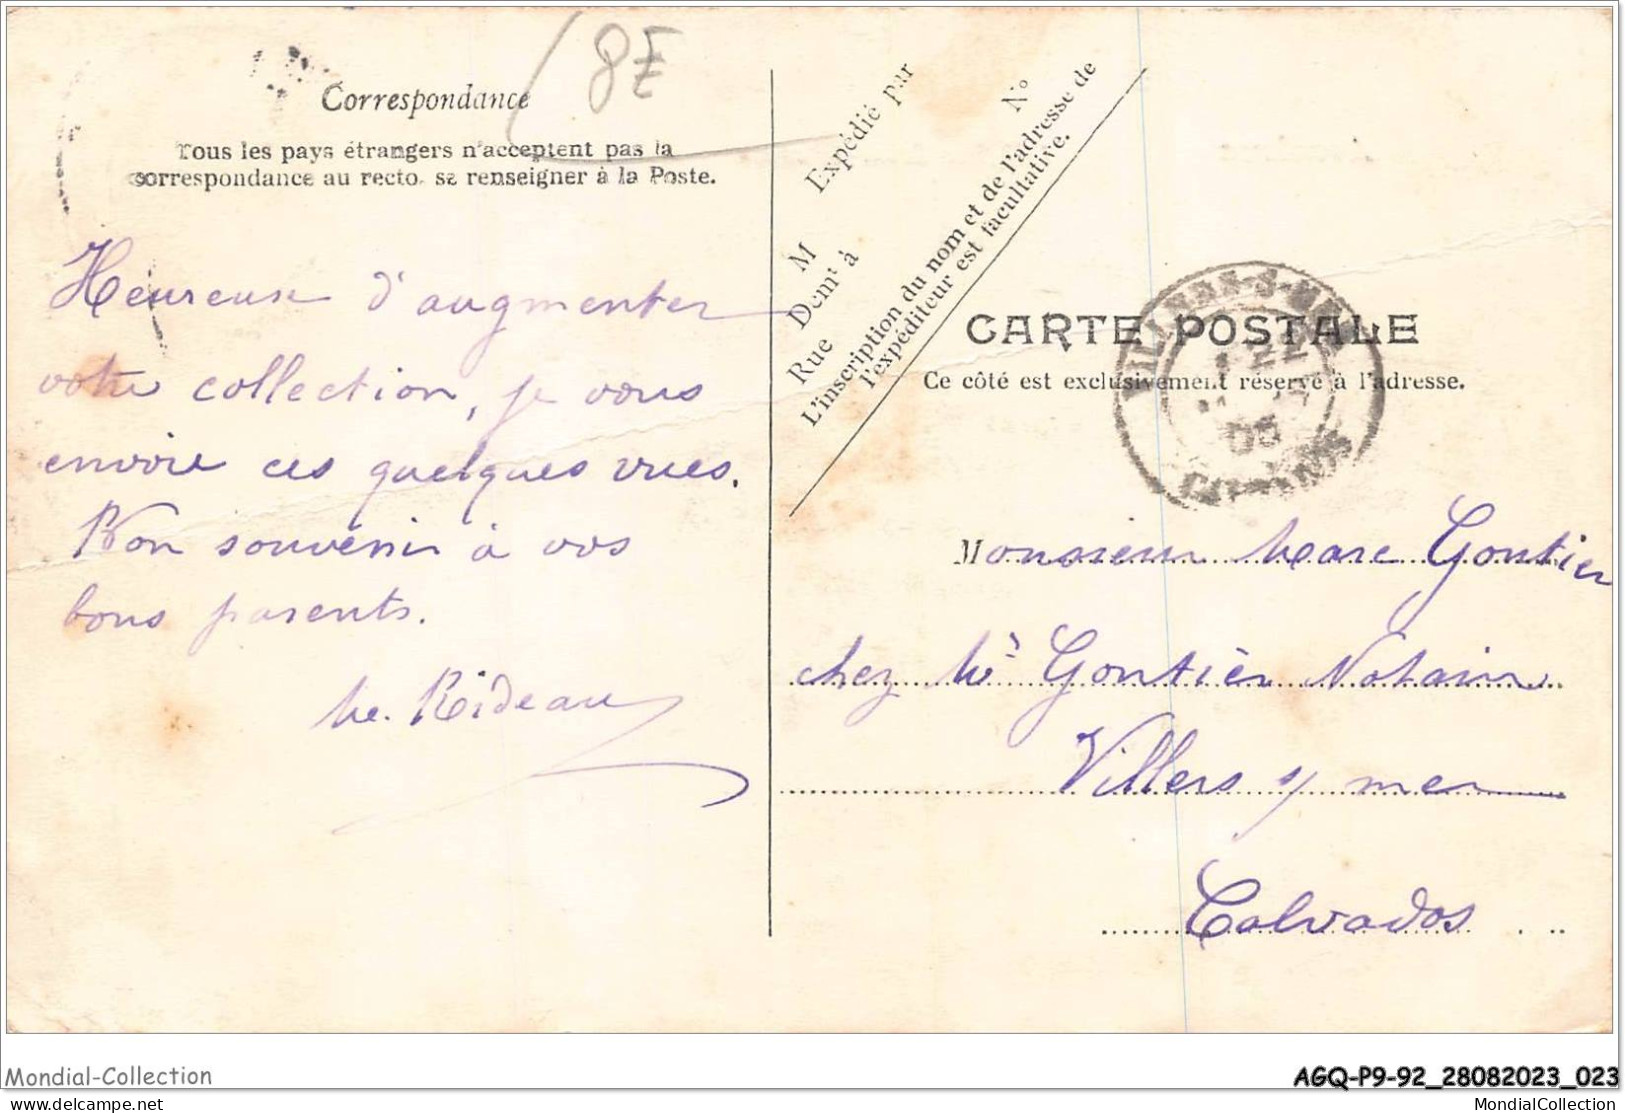 8F
Correspondance
Tous les pays étrangers n'acceptent pas la
correspondance au recto, se renseigner à la Poste.
Heureuse d'augmenter
votre collection, je vous
envoie ces quelques vues.
Bon souvenir à vos
bons parents.
Me. Rideau
Expédié par
M
Demt à
Rue
N°
L'inscription du nom et de l'adresse de
l'expéditeur est facultative.
CARTE POSTALE
Ce côté est exclusivement réservé à l'adresse.
VILLERS-S-MER
05
CALVADOS
Monsieur Marc Gontier
chez Me Gontier Notaire
Villers s/ mer
Calvados
Mondial-Collection
AGQ-P9-92_28082023_023
delcampe.net
MondialCollection